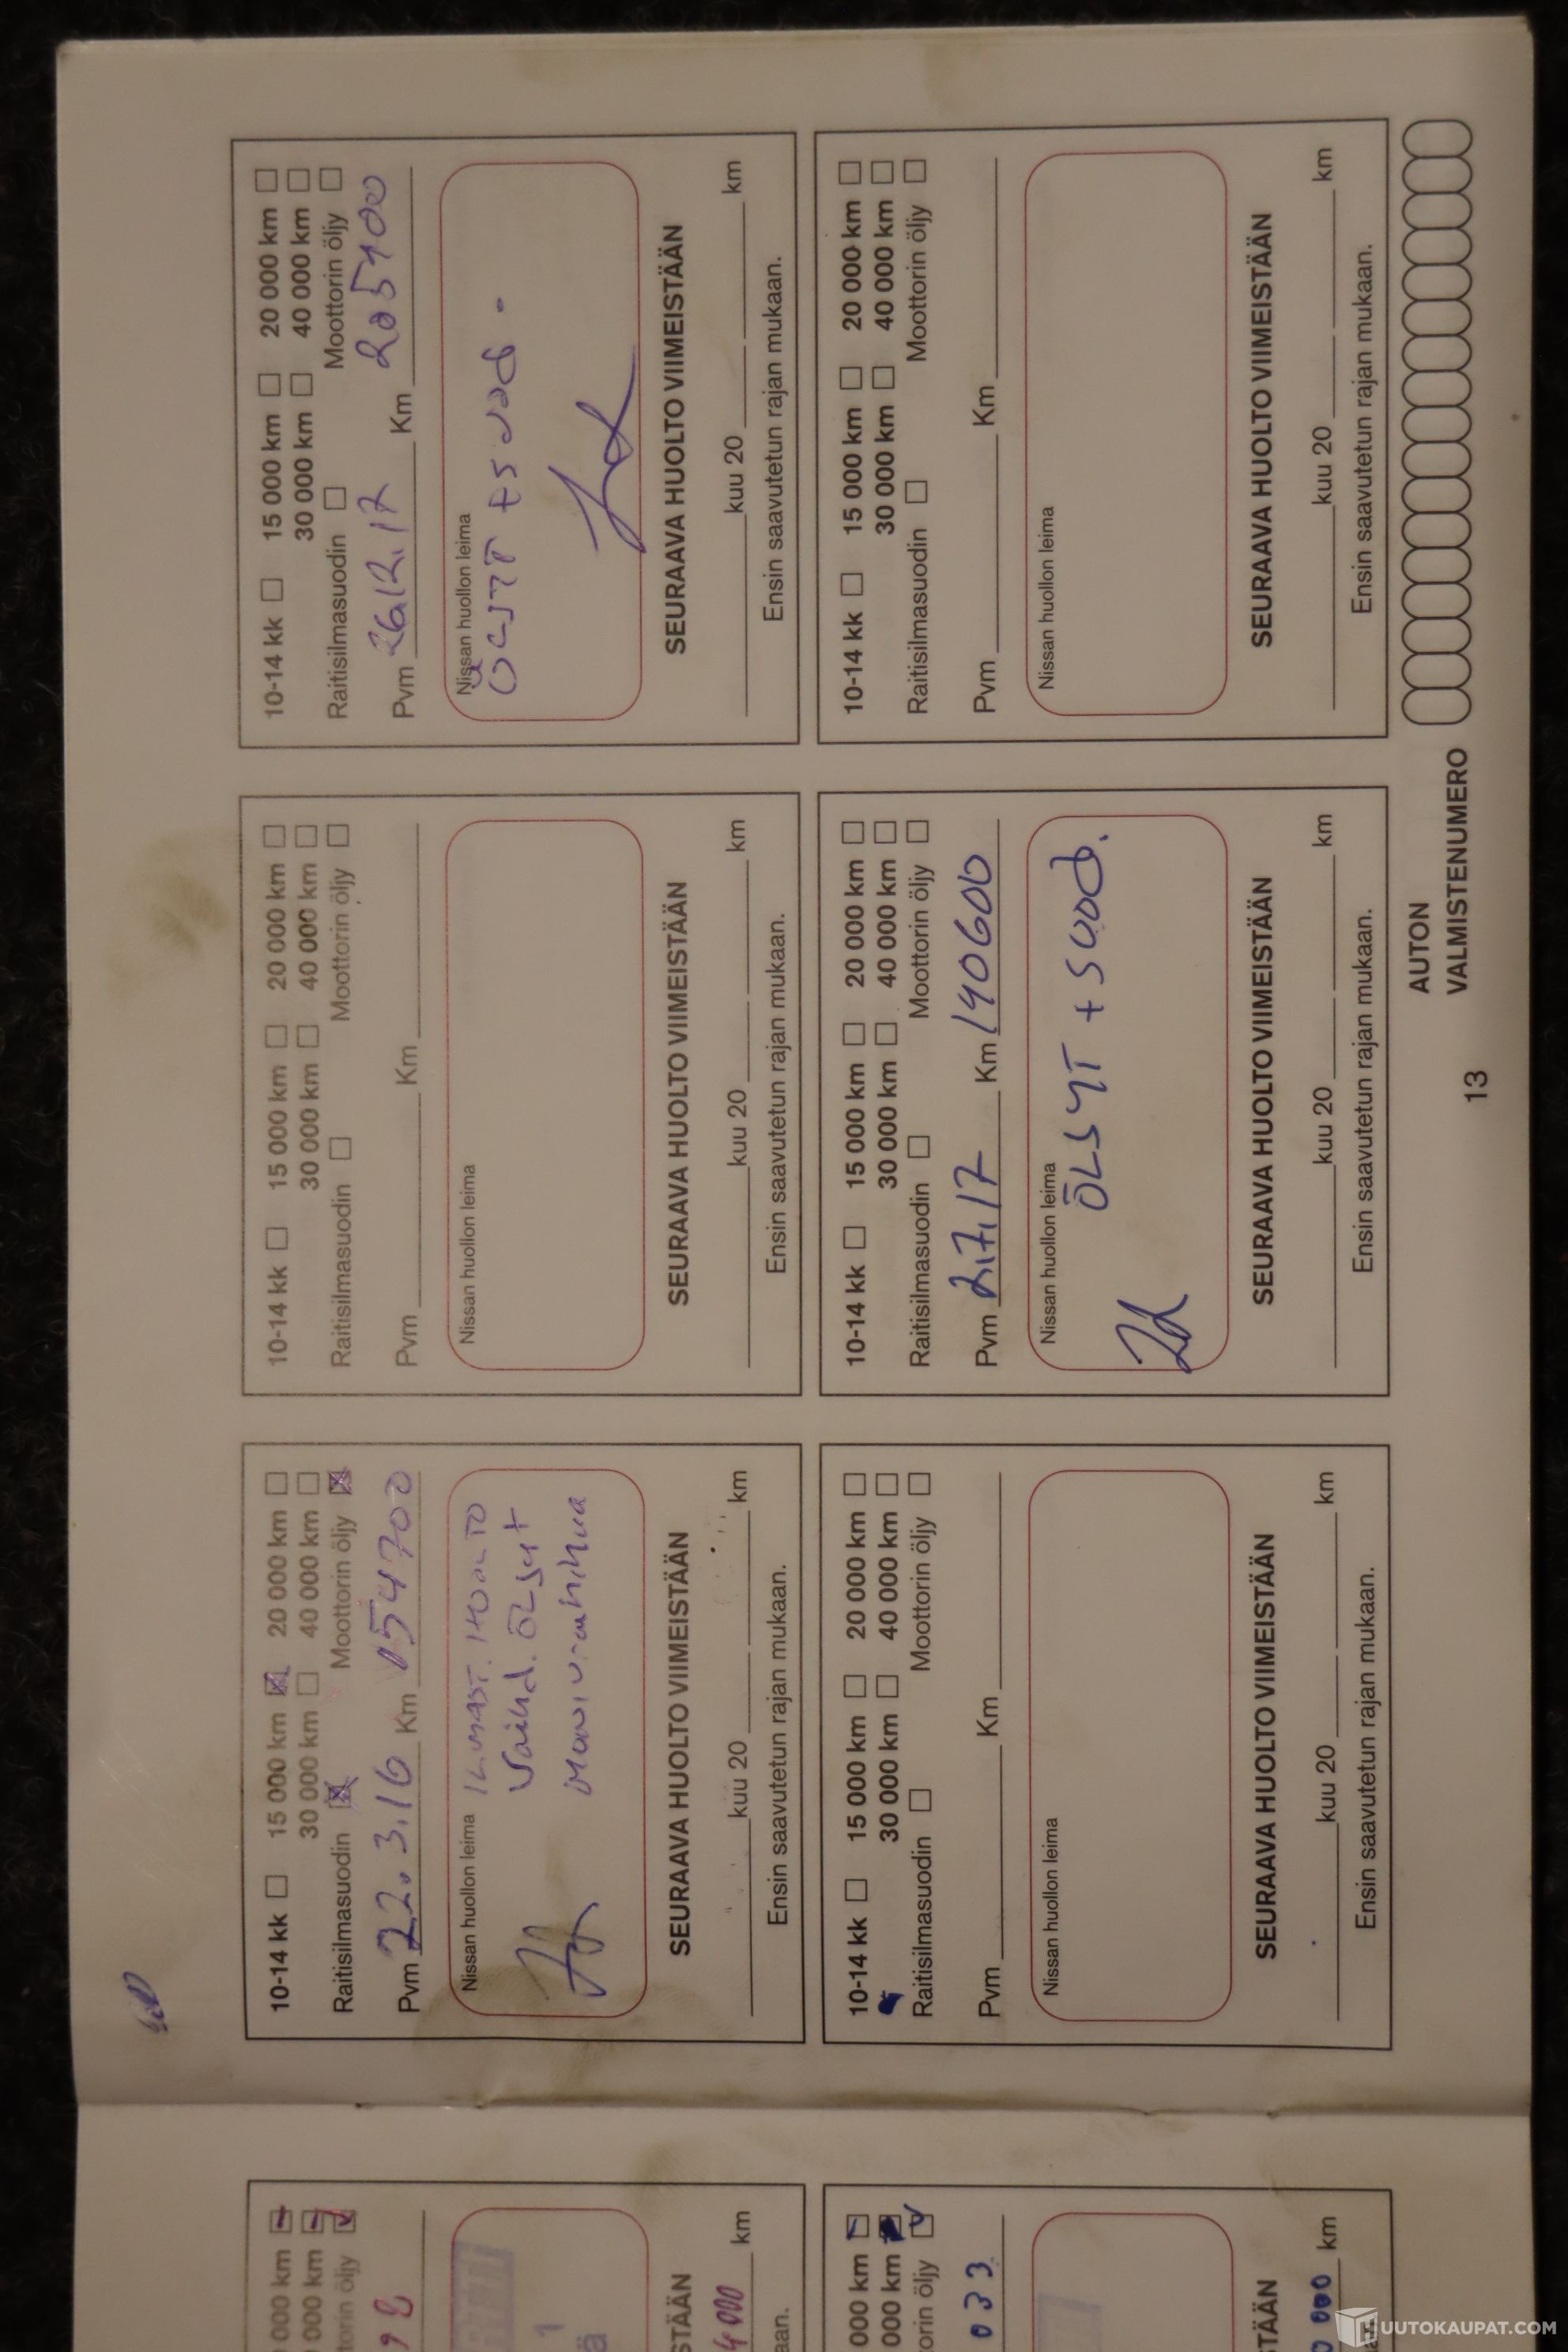 10-14 kk 15 000 km 20 000 km
30 000 km 40 000 km
Raitisilmasuodin Moottorin öljy
Pvm 22.3.16 Km 154700
Nissan huollon leima ILMAST. HUOLTO
Vaihd. ÖLJYt
SEURAAVA HUOLTO VIIMEISTÄÄN
kuu 20 km
Ensin saavutetun rajan mukaan.
10-14 kk 15 000 km 20 000 km
30 000 km 40 000 km
Raitisilmasuodin Moottorin öljy
Pvm Km
Nissan huollon leima
SEURAAVA HUOLTO VIIMEISTÄÄN
kuu 20 km
Ensin saavutetun rajan mukaan.
10-14 kk 15 000 km 20 000 km
30 000 km 40 000 km
Raitisilmasuodin Moottorin öljy
Pvm 26.12.17 Km 205400
Nissan huollon leima
ÖLJYT + SUOD.
SEURAAVA HUOLTO VIIMEISTÄÄN
kuu 20 km
Ensin saavutetun rajan mukaan.
10-14 kk 15 000 km 20 000 km
30 000 km 40 000 km
Raitisilmasuodin Moottorin öljy
Pvm Km
Nissan huollon leima
SEURAAVA HUOLTO VIIMEISTÄÄN
kuu 20 km
Ensin saavutetun rajan mukaan.
10-14 kk 15 000 km 20 000 km
30 000 km 40 000 km
Raitisilmasuodin Moottorin öljy
Pvm 2.7.17 Km 190600
Nissan huollon leima
ÖLJYT + SUOD.
SEURAAVA HUOLTO VIIMEISTÄÄN
kuu 20 km
Ensin saavutetun rajan mukaan.
10-14 kk 15 000 km 20 000 km
30 000 km 40 000 km
Raitisilmasuodin Moottorin öljy
Pvm Km
Nissan huollon leima
SEURAAVA HUOLTO VIIMEISTÄÄN
kuu 20 km
Ensin saavutetun rajan mukaan.
13
AUTON
VALMISTENUMERO
000 km
000 km
torin öljy
STÄÄN
4000 km
aan.
000 km
000 km
torin öljy
033
STÄÄN
000 km
UUTOKAUPAT.COM